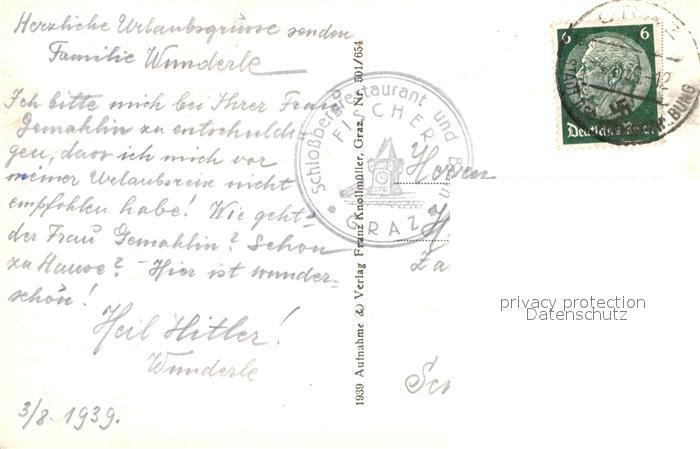 Herzliche Urlaubsgrüsse senden
Familie Wunderle
Ich bitte mich bei Ihrer Frau
Gemahlin zu entschuldi-
gen, dass ich mich vor
meiner Urlaubsreise nicht
empfohlen habe! Wie geht's
der Frau Gemahlin? Schon
zu Hause? - Hier ist wunder-
schön!
Heil Hitler!
Wunderle
3/8. 1939.
1939 Aufnahme & Verlag Franz Knollmüller, Graz, Nr. 501/654
Schloßbergrestaurant und
FISCHER
* GRAZ
6 6
Deutsches Reich
GRAZ
Herren
privacy protection
Datenschutz